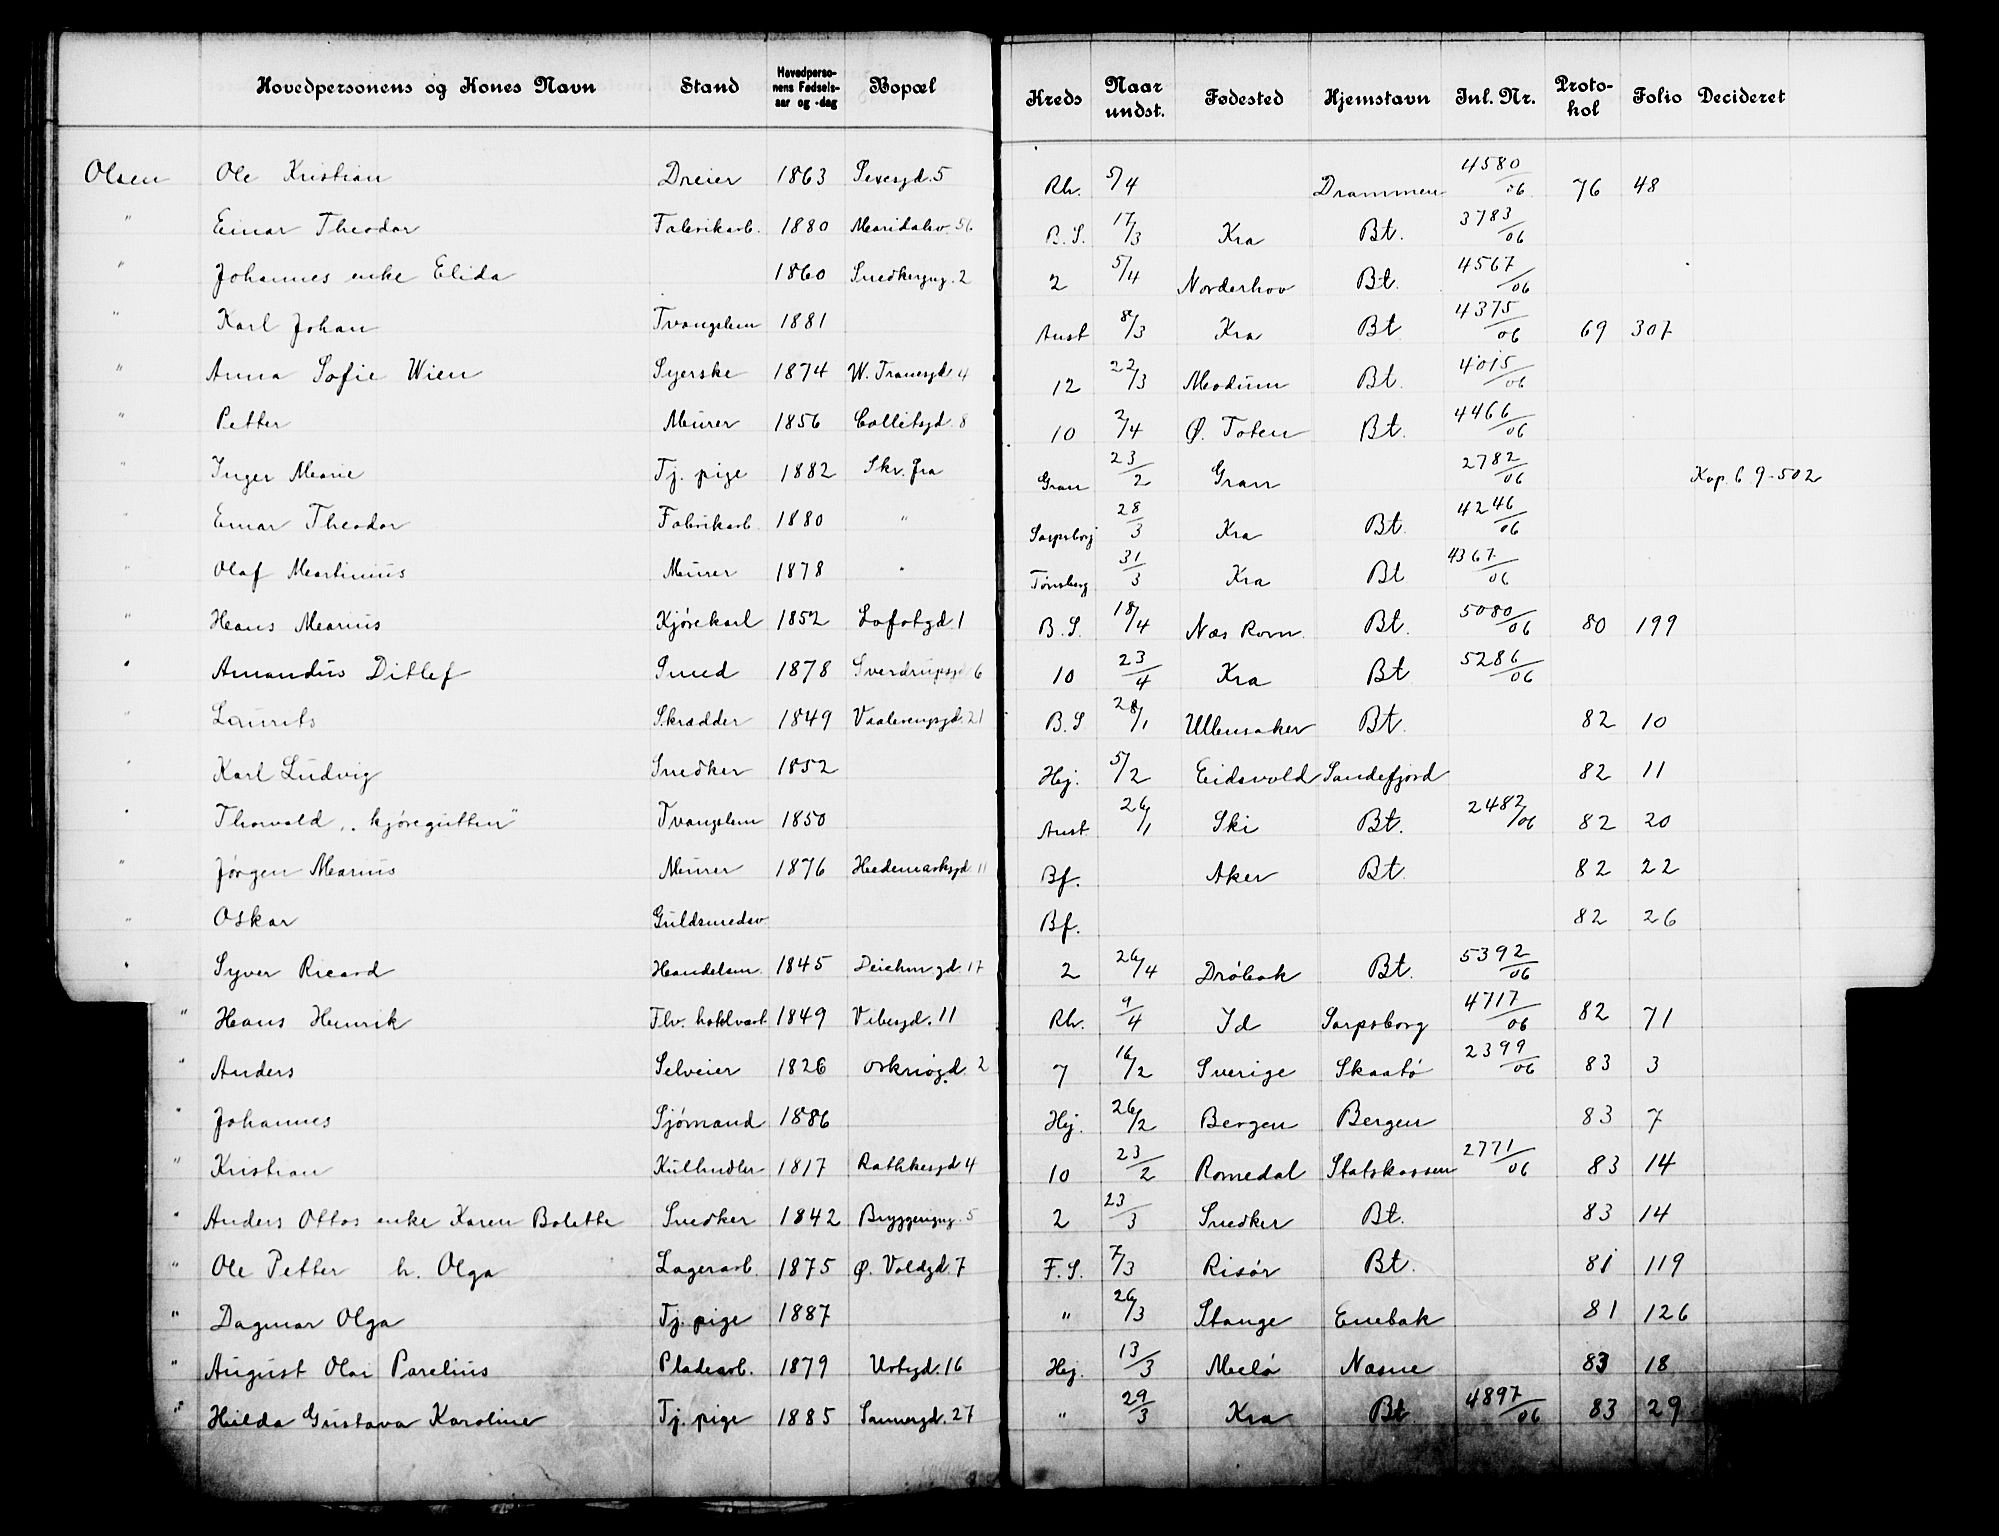 Hovedpersonens og Kones Navn Stand Hovedperso-nens Fødsels-aar og -dag Bopæl Kreds Naar undst. Fødested Hjemstavn Jnl. Nr. Proto-kol Folio Decideret
Olsen Ole Kristian Dreier 1863 5 Rh. 5/4 Drammen 4580/06 76 48
" Einar Theodor Fabrikarb. 1880 Maridalsv. 56 B.S. 17/3 Kra Bt. 3783/06
" Johannes enke Elida 1860 Snedkergg. 2 2 5/4 Norderhov Bt. 4567/06
" Karl Johan Tvangslem 1881 Anst 8/3 Kra Bt 4375/06 69 307
" Anna Sofie Wien Syerske 1874 W. Tranesgd 4 12 22/3 Modum Bt. 4015/06
" Petter Murer 1856 Colletsgd. 8 10 2/4 Ø. Toten Bt. 4466/06
" Inger Marie Tj. pige 1882 Skr. fra Gran 23/2 Gran 2782/06 Kop. b 9-502
" Einar Theodor Fabrikarb. 1880 " Sarpsborg 28/3 Kra Bt. 4246/06
" Olaf Martinius Murer 1878 " Tønsberg 31/3 Kra Bt 4367/06
" Hans Marius Kjørekarl 1852 Lofotgd. 1 B.S. 18/4 Næs Rom. Bt. 5080/06 80 199
" Amandus Ditlef Smed 1878 Sverdrupsgd 6 10 23/4 Kra Bt 5286/06
" Laurits Skrædder 1849 Vaalerengsgd. 21 B.S 28/1 Ullensaker Bt. 82 10
" Karl Ludvig Snedker 1852 Hej. 5/2 Eidsvold Sandefjord 82 11
" Thorvald ,, kjøregutten" Tvangslem 1850 Anst 26/1 Ski Bt. 2482/06 82 20
" Jørgen Marius Murer 1876 Hedemarksgd 11 Bf. Aker Bt. 82 22
" Oskar Guldsmedsv Bf. 82 26
" Syver Ricard Handelsm. 1845 Deichm gd. 17 2 26/4 Drøbak Bt. 5392/06
" Hans Henrik 1849 Vibesgd. 11 Rh. 9/4 Id Sarpsborg 4717/06 82 71
" Anders Selveier 1826 2 7 16/2 Sverige Skaatø 2399/06 83 3
" Johannes Sjømand 1886 Hej. 26/2 Bergen Bergen 83 7
" Kristian Kulhndler 1817 Rathkesgd 4 10 23/2 Romedal Statskassen 2771/06 83 14
" Anders Ottos enke Karen Bolette Snedker 1842 Bryggerigg. 5 2 23/3 Snedker Bt. 83 14
" Ole Petter h. Olga Lagerarb. 1875 Ø. Voldgd. 7 F.S. 7/3 Risør Bt. 81 119
" Dagmar Olga Tj. pige 1887 " 26/3 Stange Enebak 81 126
" August Olai Parelius Pladearb. 1879 Urtegd. 16 Hej. 13/3 Melø Næsne 83 18
" Hilda Gustava Karoline Tj. pige 1885 Sannergd. 27 " 29/3 Kra Bt 4897/06 83 29